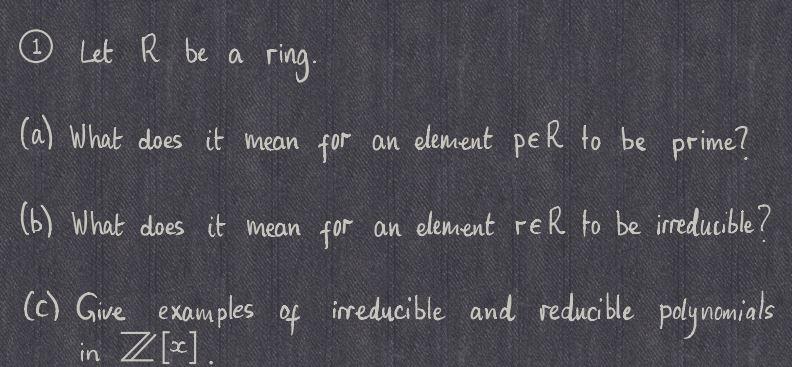 ① Let R be a ring.
(a) What does it mean for an element p∈R to be prime?
(b) What does it mean for an element r∈R to be irreducible?
(c) Give examples of irreducible and reducible polynomials
in ℤ[x].